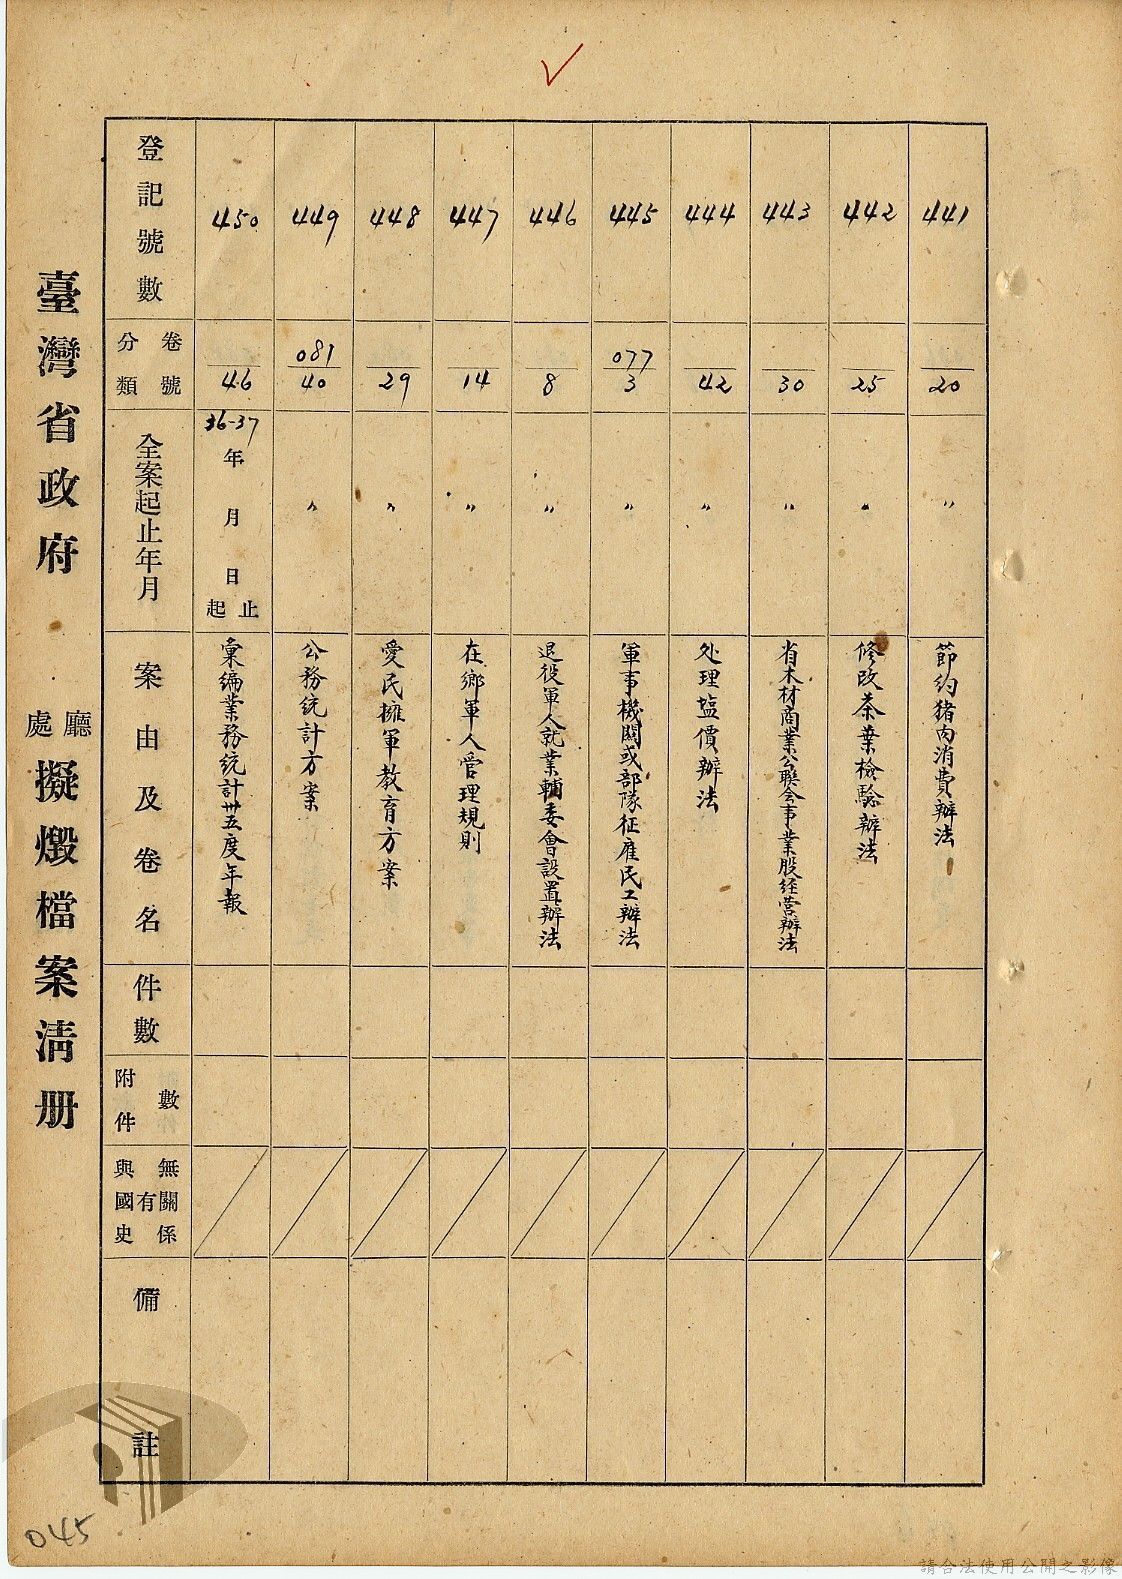 臺灣省政府 廳處擬燬檔案清册
登記號數
分類 卷號
全案起止年月
案由及卷名
件數
附件數
與國史有無關係
備註
450
46
36-37年 月 日起止
彙編業務統計卅五度年報
449
081
40
〃
公務統計方案
448
29
〃
愛民擁軍教育方案
447
14
〃
在鄉軍人管理規則
446
8
〃
退役軍人就業輔委會設置辦法
445
077
3
〃
軍事機關或部隊征雇民工辦法
444
42
〃
处理塩價辦法
443
30
〃
省木材商業公聯会事業股经营辦法
442
25
〃
修改茶葉檢驗辦法
441
20
〃
節約猪肉消費辦法
045
請合法使用公開之影像